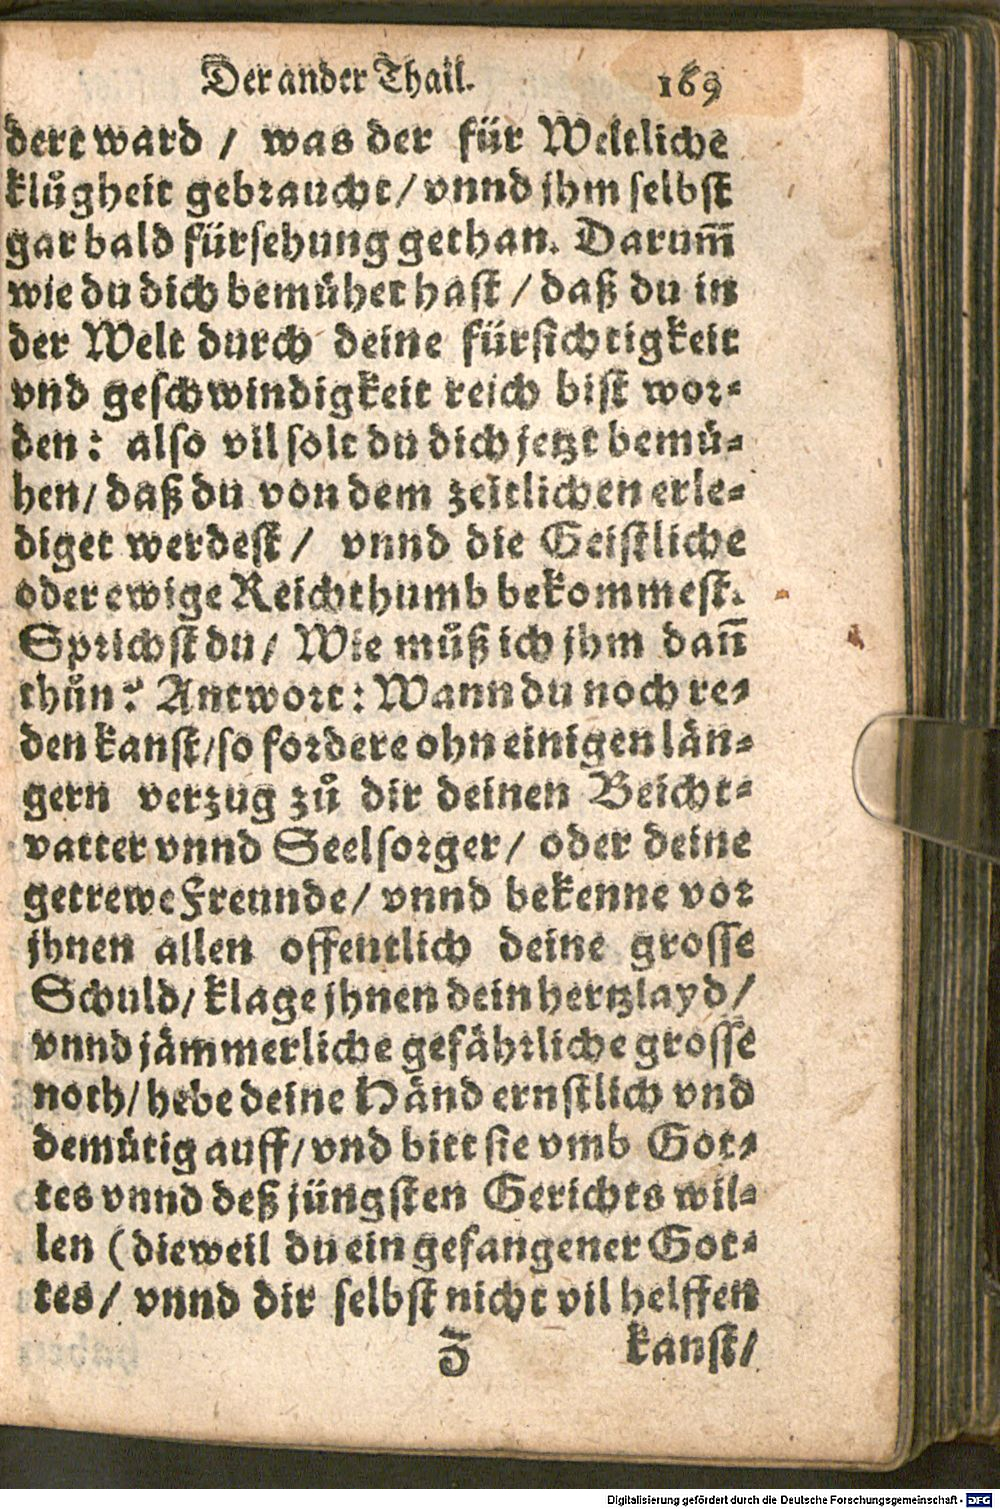 Der ander Thail. 169
dert ward / was der für Weltliche
klůgheit gebraucht / vnnd jhm selbst
gar bald fürsehung gethan. Darum̃
wie du dich bemühet hast / daß du in
der Welt durch deine fürsichtigkeit
vnd geschwindigkeit reich bist wor-
den: also vil solt du dich jetzt bemü-
hen / daß du von dem zeitlichen erle-
diget werdest / vnnd die Geistliche
oder ewige Reichthumb bekommest.
Sprichst du / Wie můß ich jhm dañ
thůn? Antwort: Wann du noch re-
den kanst / so fordere ohn einigen län-
gern verzug zů dir deinen Beicht-
vatter vnnd Seelsorger / oder deine
getrewe Freunde / vnnd bekenne vor
jhnen allen offentlich deine grosse
Schuld / klage jhnen dein hertzlayd /
vnnd jämmerliche gefährliche grosse
noth / hebe deine Händ ernstlich vnd
demütig auff / vnd bitt sie vmb Got-
tes vnnd deß jüngsten Gerichts wil-
len (dieweil du ein gefangener Got-
tes / vnnd dir selbst nicht vil helffen
Z kanst /
Digitalisierung gefördert durch die Deutsche Forschungsgemeinschaft - DFG